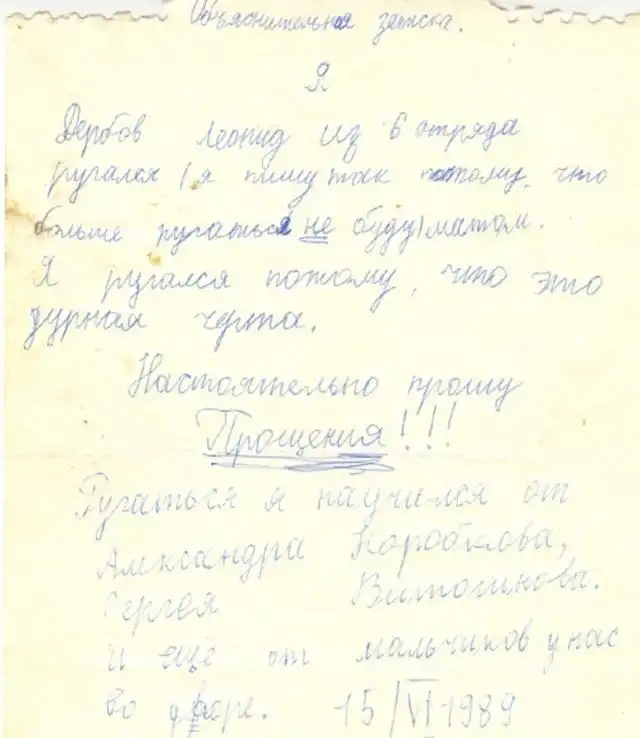 Объяснительная записка.
Я
Дербов Леонид из 6 отряда
ругался (я пишу так потому, что
больше ругаться не буду) матом.
Я ругался потому, что это
дурная черта.
Настоятельно прошу
Прощения!!!
Ругаться я научился от
Александра Коробкова,
Сергея
и еще от мальчиков у нас
во дворе. 15/VI 1989